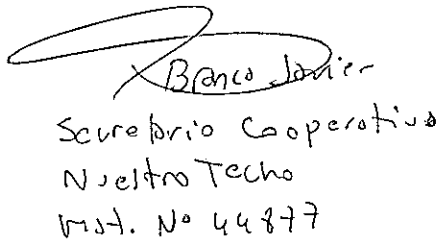 Branco Javier
Secretario Cooperativa
Nuestro Techo
Mat. Nº 44877